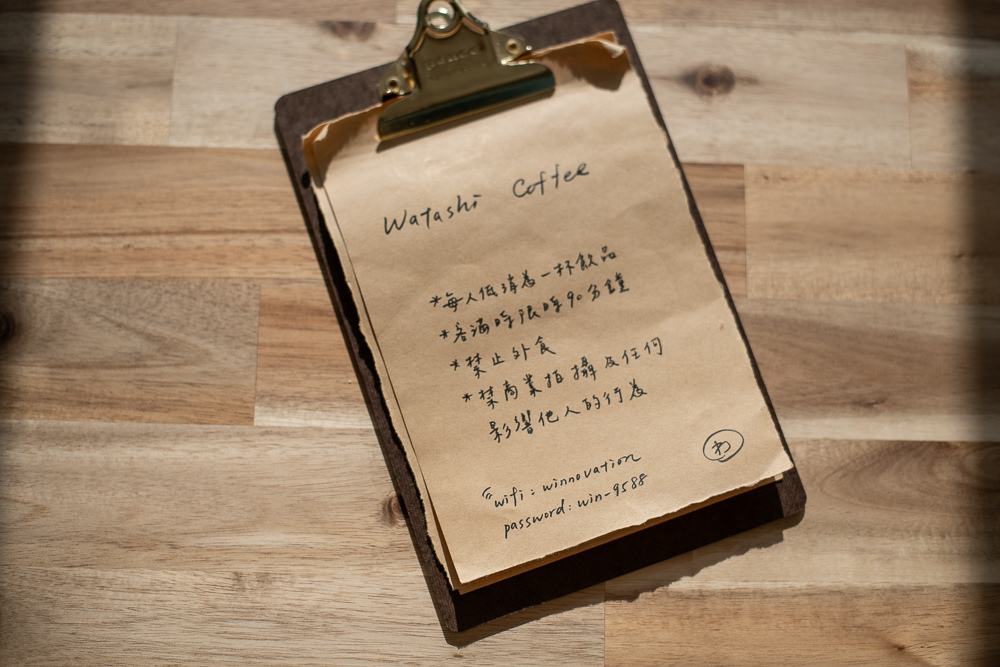 Watashi Coffee
*每人低消為一杯飲品
*客滿時限時90分鐘
*禁止外食
*禁商業拍攝及任何
影響他人的行為
わ
wifi: winnovation
password: win-9588